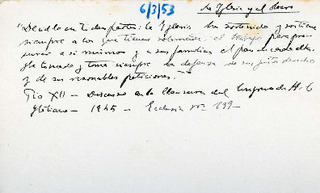 6/7/53
La Iglesia y el obrero
en todas partes: la Iglesia ha sostenido y sostiene
siempre a los que tienen solamente el trabajo para pro-
curar a sí mismos y a sus familias el pan de cada día.
Ha tomado y toma siempre la defensa de sus justos derechos
y de sus razonables peticiones."
Pío XII — Discurso en la Clausura del Congreso de A. C.
Italiana — 1945 — Ecclesia nº 199 —